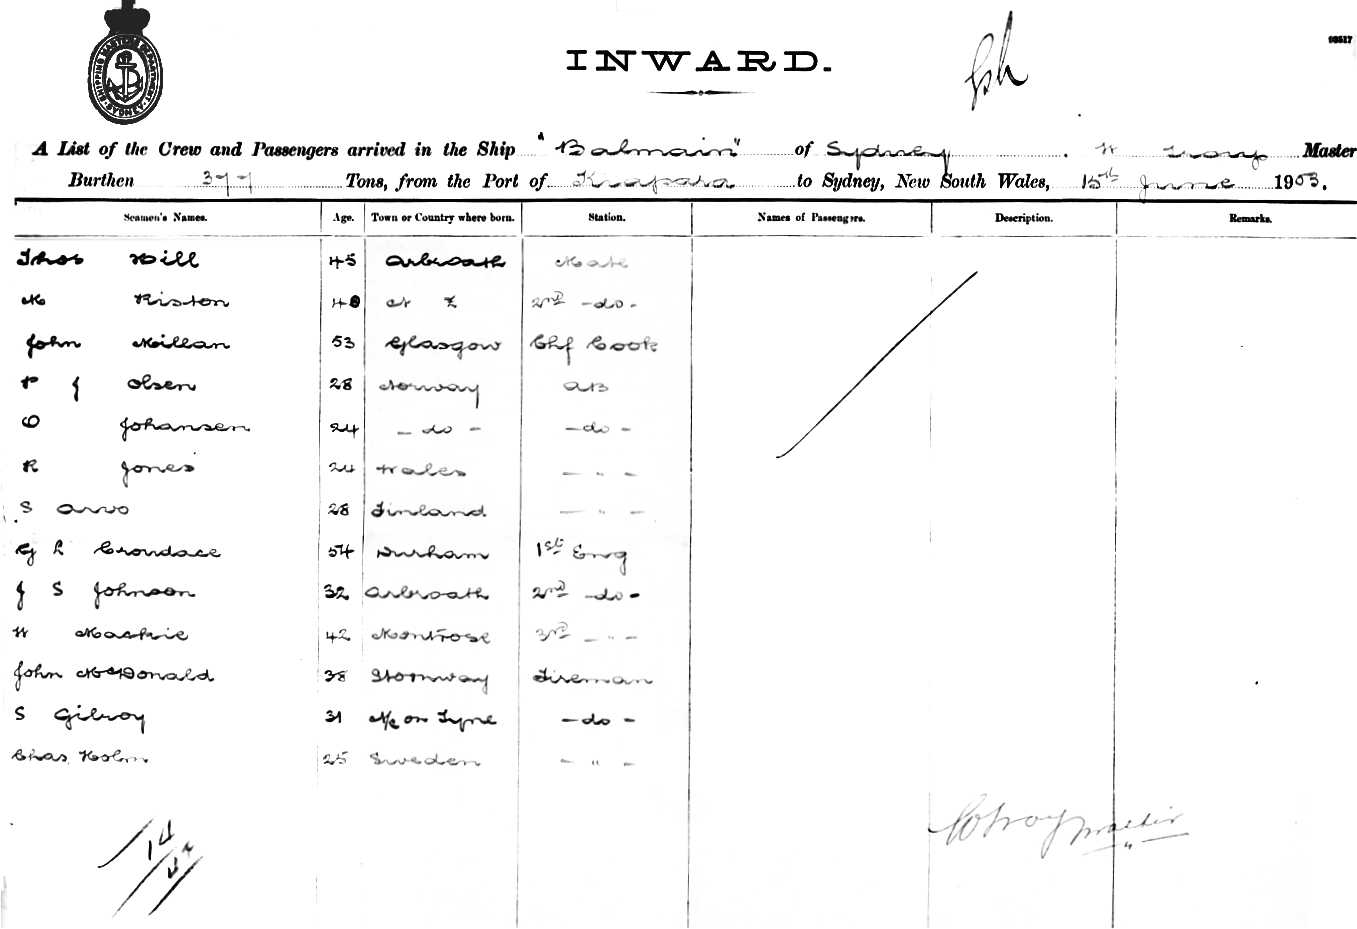 SHIPPING MASTER'S DEPARTMENT SYDNEY
INWARD.
A List of the Crew and Passengers arrived in the Ship "Balmain" of Sydney W Troy Master
Burthen 377 Tons, from the Port of to Sydney, New South Wales, 15th June 1903.
Seamen's Names. Age. Town or Country where born. Station. Names of Passengers. Description. Remarks.
Thos Hill 45 Arbroath Mate
M Riston 40 2nd - do -
John Millan 53 Glasgow Chf Cook
P J Olsen 28 Norway AB
O Johansen 24 - do - - do -
R Jones 24 Wales - " -
S Arvo 28 Finland - " -
G R Crondace 54 Durham 1st Eng
J S Johnson 32 Arbroath 2nd - do -
W Mackie 42 Montrose 3rd - " -
John McDonald 38 Stornway Fireman
S Gilroy 31 N/c on Tyne - do -
Chas Holm 25 Sweden - " -
14
W Troy Master